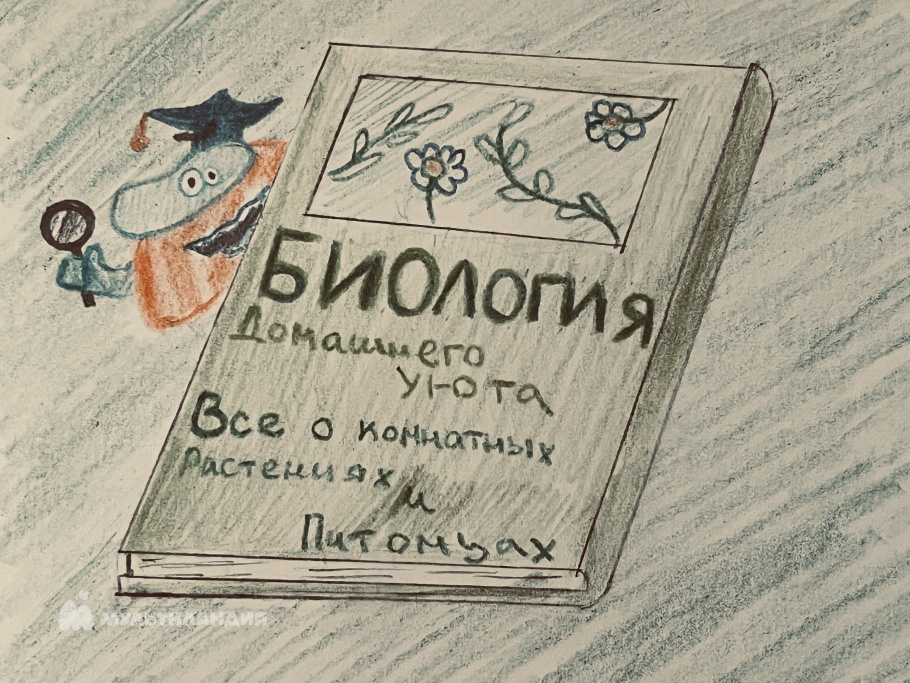 БИОЛОГИЯ
Домашнего
Уюта
Все о комнатных
Растениях
и
Питомцах
МУЛЬТЛАНДИЯ